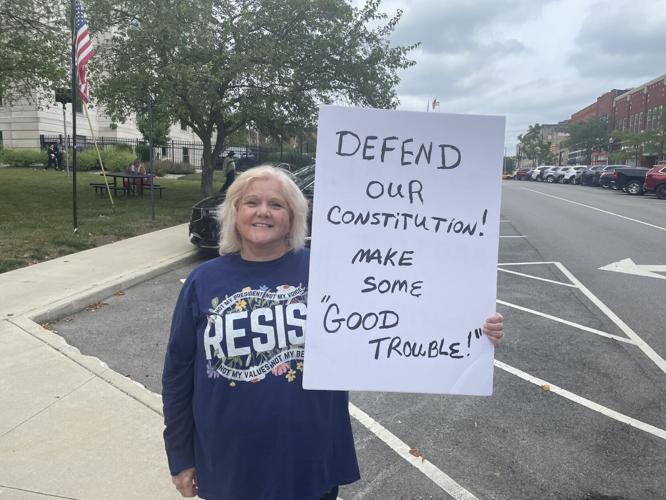 DEFEND
OUR
CONSTITUTION!
MAKE
SOME
"GOOD
TROUBLE!"
NOT MY PRESIDENT NOT MY VOICE
RESIS
NOT MY VALUES NOT MY BE